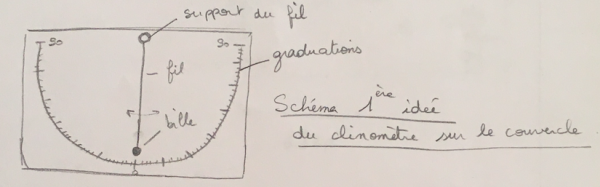 support du fil
90
90
graduations
fil
bille
0
Schéma 1ère ideé
du clinomètre sur le couvercle